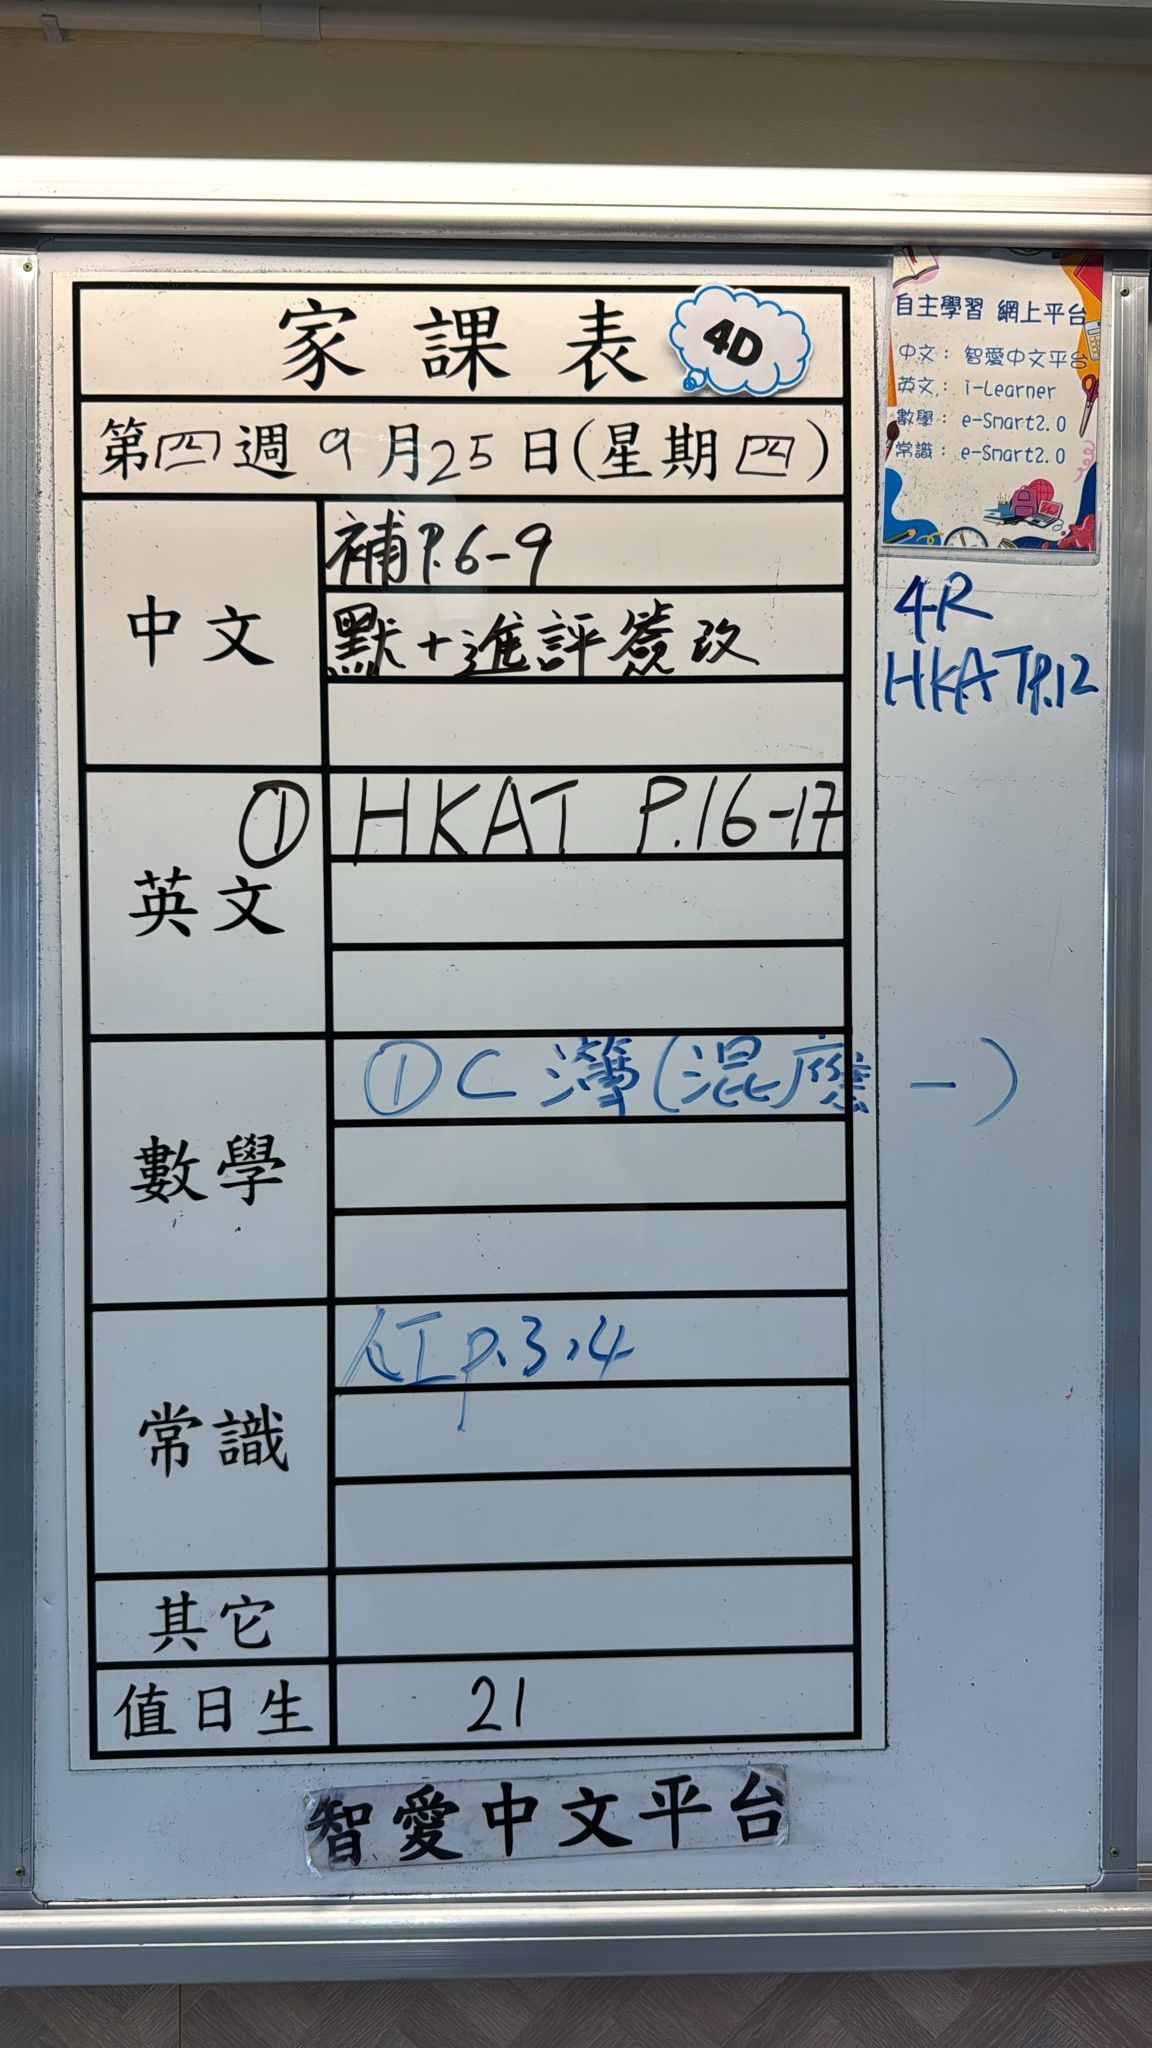 家課表 4D
第四週 9月25日(星期四)
中文
補P.6-9
默+進評簽改
英文
① HKAT P.16-17
數學
①C簿(混應一)
常識
人工p.3,4
其它
值日生
21
智愛中文平台
自主學習 網上平台
中文：智愛中文平台
英文：i-Learner
數學：e-Smart2.0
常識：e-Smart2.0
4R
HKAT P.12